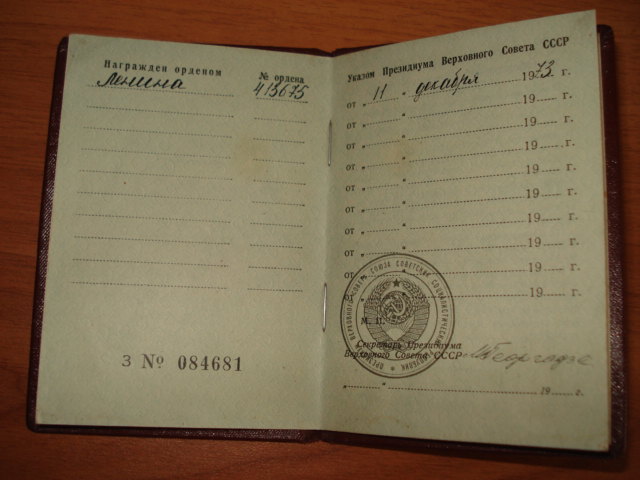 Награжден орденом
№ ордена
Ленина 413675
З № 084681
Указом Президиума Верховного Совета СССР
от „ 11 “ декабря 1973 г.
от „ “ 19 г.
от „ “ 19 г.
от „ “ 19 г.
от „ “ 19 г.
от „ “ 19 г.
от „ “ 19 г.
от „ “ 19 г.
М. П.
Секретарь Президиума
Верховного Совета СССР
ПРЕЗИДИУМ ВЕРХОВНОГО СОВЕТА СОЮЗА СОВЕТСКИХ СОЦИАЛИСТИЧЕСКИХ РЕСПУБЛИК
МГеоргадзе
„ “ 19 г.